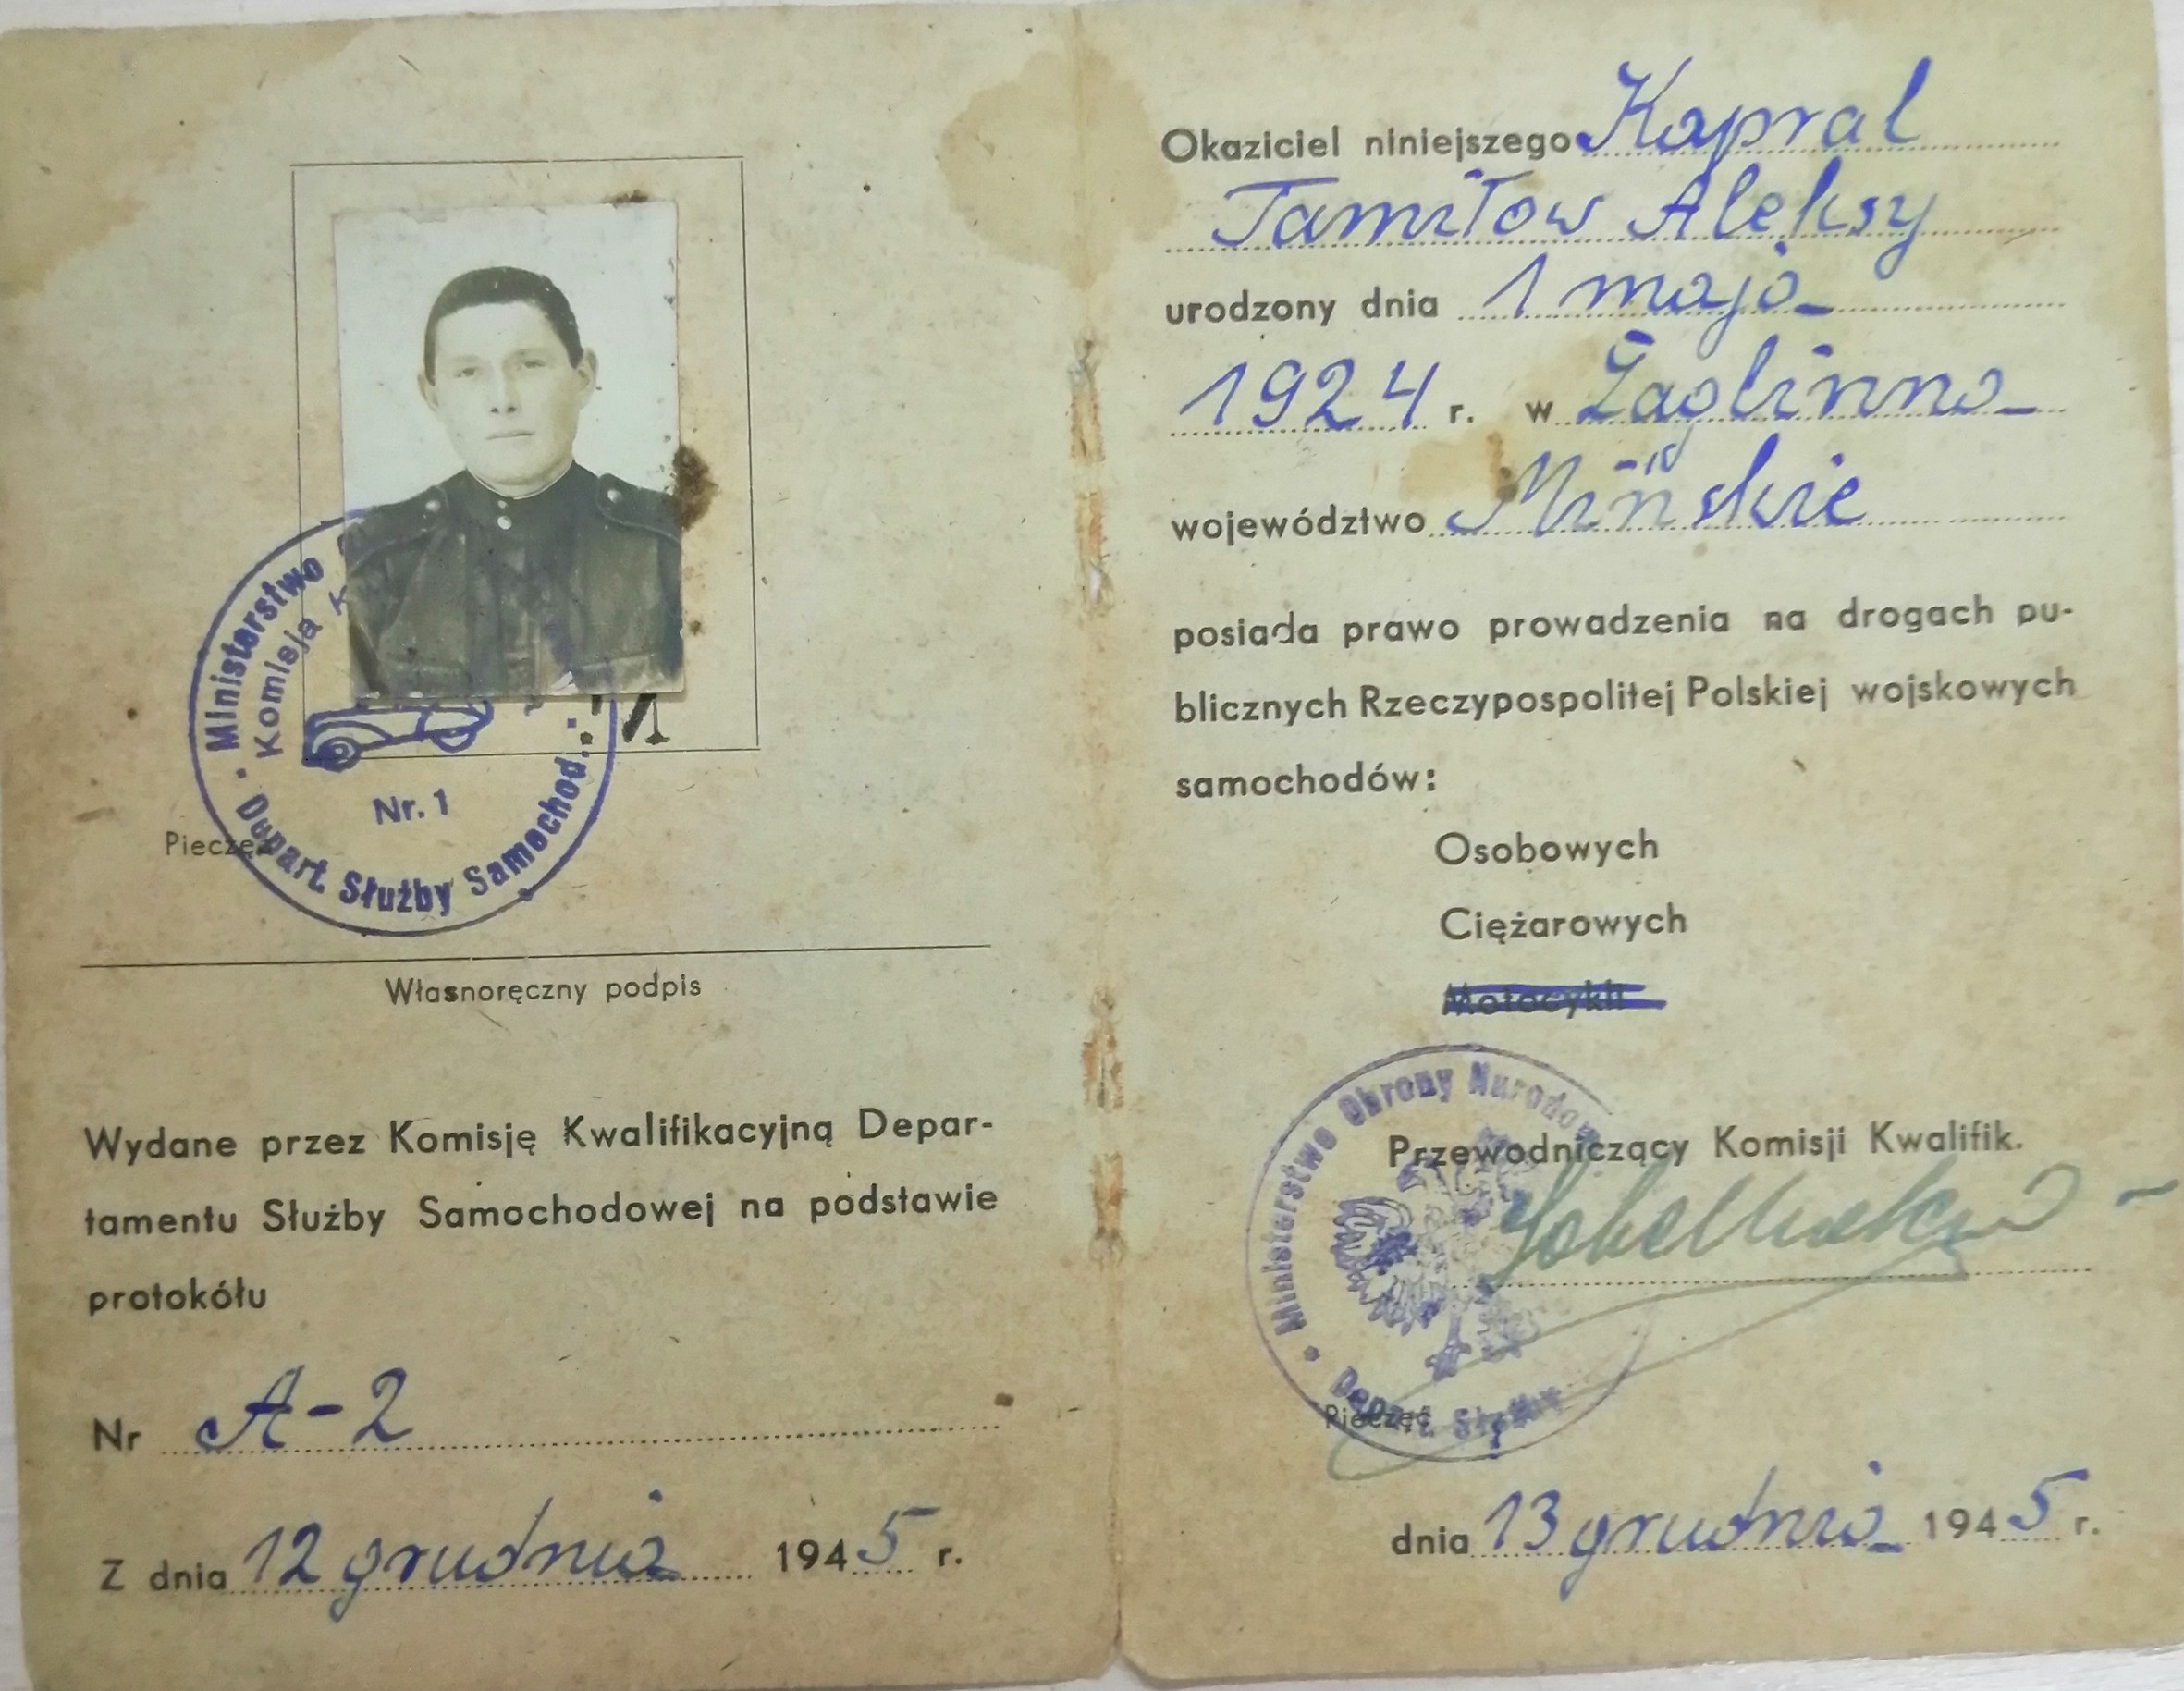 Ministerstwo
Komisja
Nr. 1
Depart. Służby Samochod.
Pieczęć
Własnoręczny podpis
Wydane przez Komisję Kwalifikacyjną Depar-
tamentu Służby Samochodowej na podstawie
protokółu
Nr A-2
Z dnia 12 grudnia 1945 r.
Okaziciel niniejszego Kapral
Tamiłow Aleksy
urodzony dnia 1 maja
1924 r. w
województwo Mińskie
posiada prawo prowadzenia na drogach pu-
blicznych Rzeczypospolitej Polskiej wojskowych
samochodów:
Osobowych
Ciężarowych
Motocykli
Ministerstwo Obrony Narodowej
Przewodniczący Komisji Kwalifik.
Depart. Służby
Pieczęć
dnia 13 grudnia 1945 r.